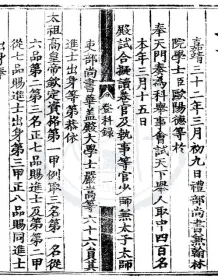 嘉靖三十二年三月初九日禮部尚書兼翰林
院學士臣歐陽德等於
奉天門奏為科舉事會試天下舉人取中四百名
本年三月十五日
殿試合擬讀卷官及執事等官少師兼太子太師
登科錄
吏部尚書華蓋殿大學士嚴嵩等六十六員其
進士出身等第恭依
太祖高皇帝欽定資格第一甲例取三名第一名從
六品第二第三名正七品賜進士及第第二甲
從七品賜進士出身第三甲正八品賜同進士